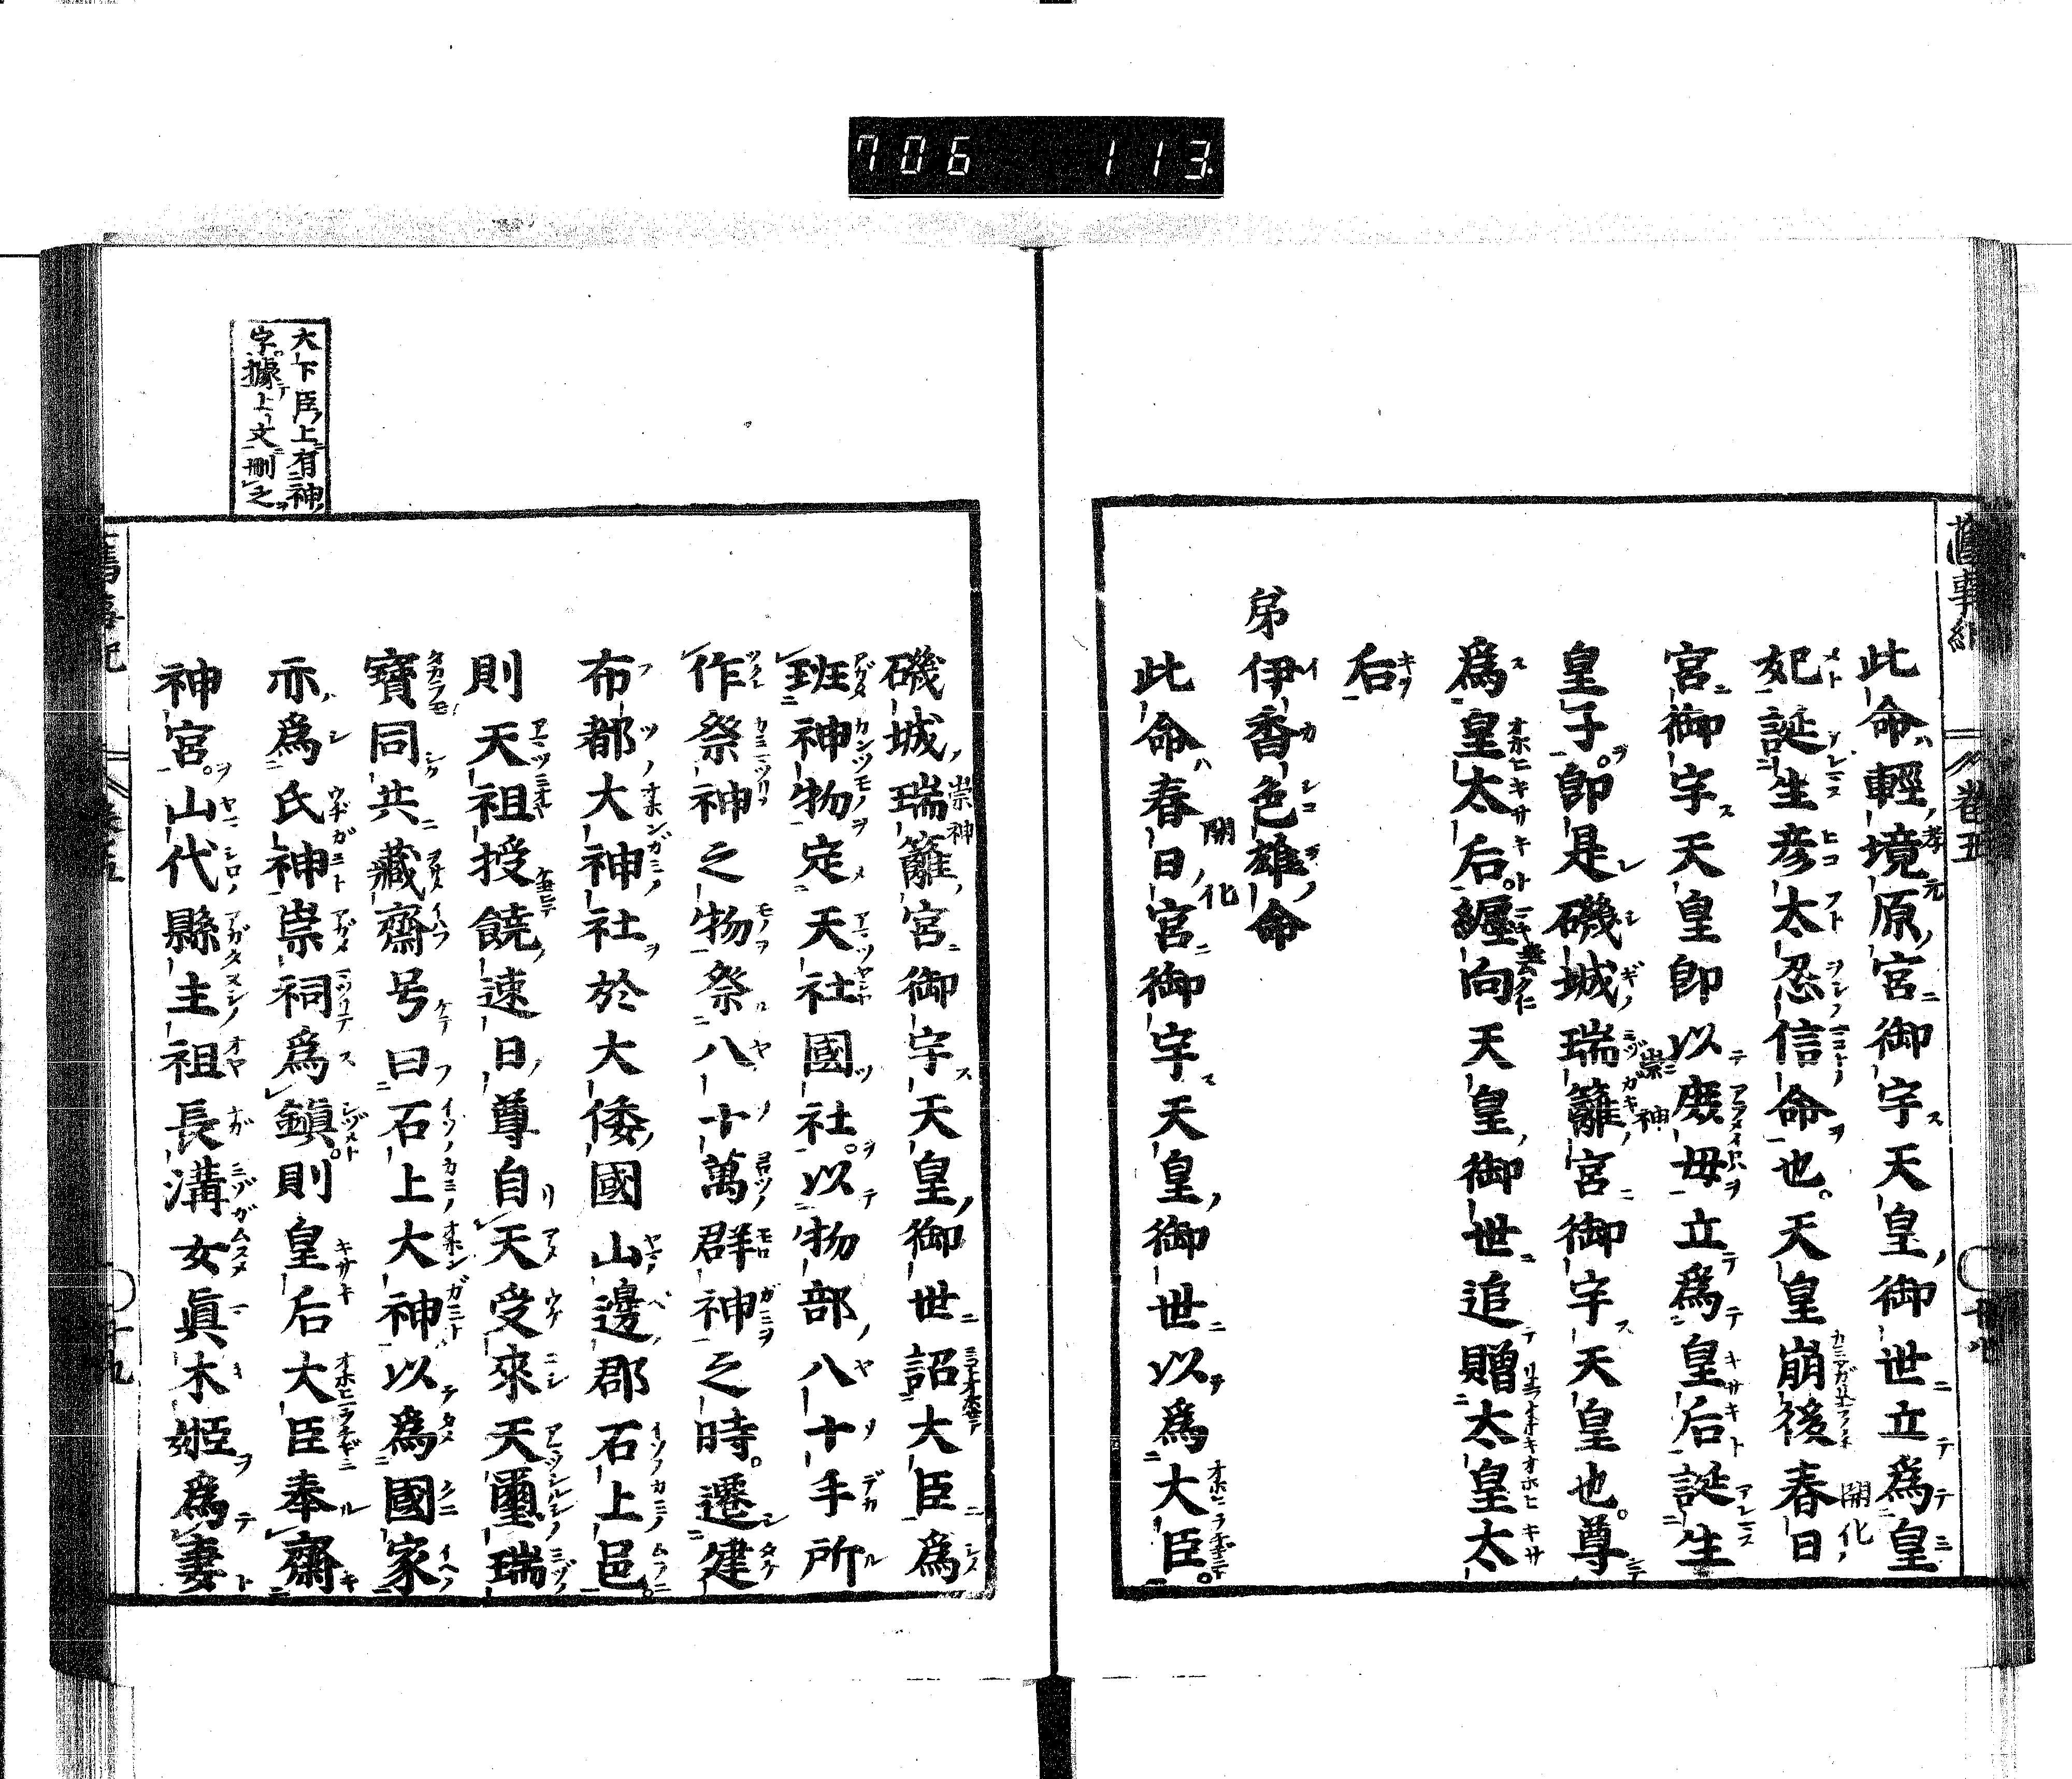 706 113
舊事紀 卷五 十八
此命輕境原宮御宇天皇御世立爲皇
妃誕生彦太忍信命也天皇崩後春日
宮御宇天皇卽以庶母立爲皇后誕生
皇子卽是磯城瑞籬宮御宇天皇也尊
爲皇太后纒向天皇御世追贈太皇太
后
弟伊香色雄命
此命春日宮御宇天皇御世以爲大臣
磯城瑞籬宮御宇天皇御世詔大臣爲
班神物定天社國社以物部八十手所
作祭神之物祭八十萬群神之時遷建
布都大神社於大倭國山邊郡石上邑
則天祖授饒速日尊自天受來天璽瑞
寶同共藏齋号曰石上大神以爲國家
亦爲氏神崇祠爲鎭則皇后大臣奉齋
神宮山代縣主祖長溝女眞木姬爲妻
大下臣上有神
字據上文刪之